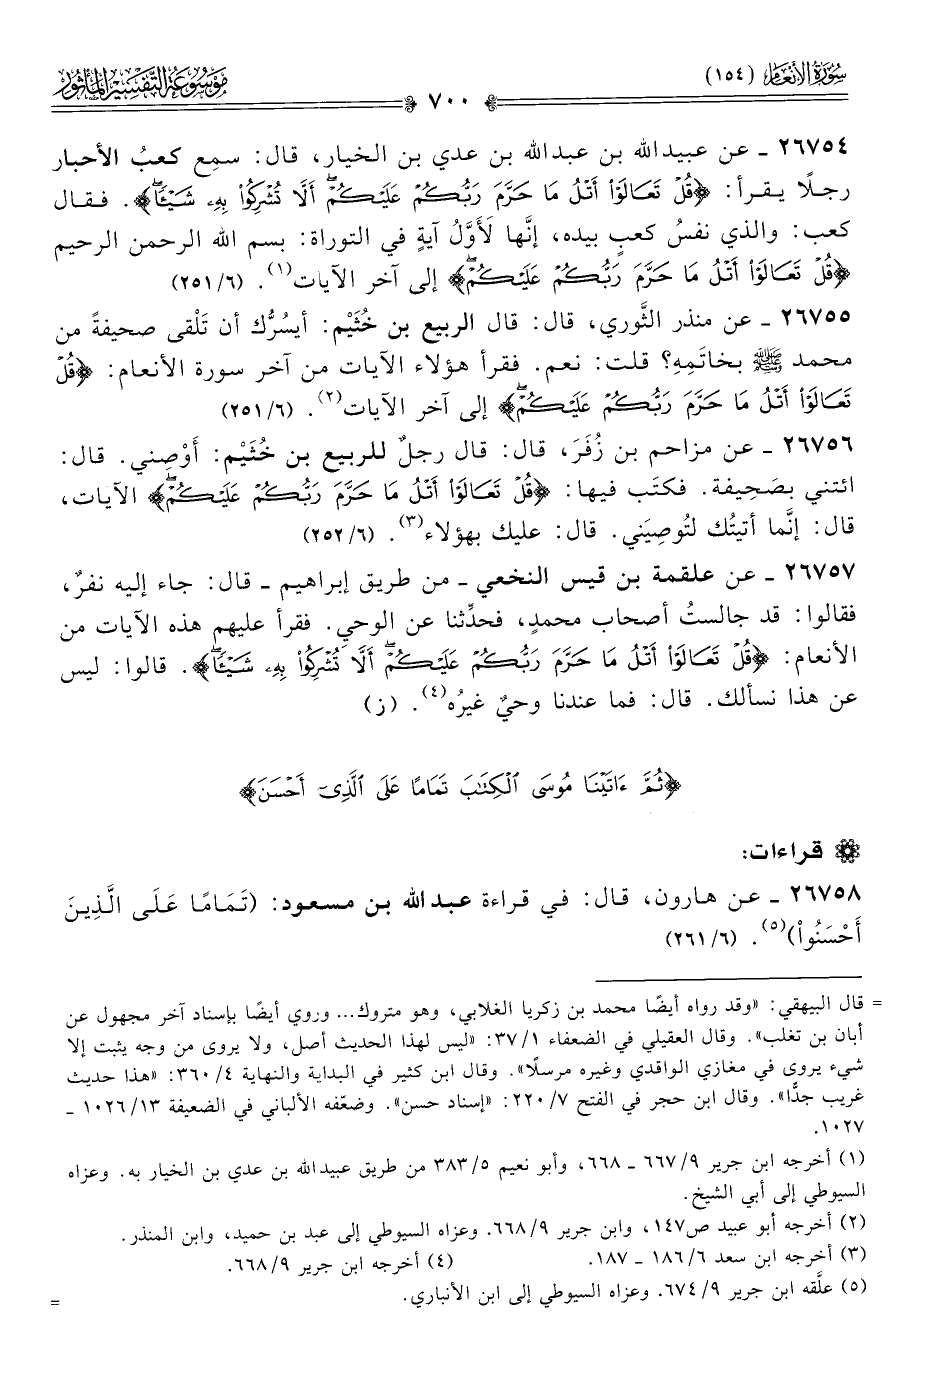 سورة الأنعام (١٥٤)
٧٠٠
موسوعة التفسير المأثور
٢٦٧٥٤ ـ عن عبيدالله بن عبدالله بن عدي بن الخيار، قال: سمِع كعبُ الأحبار
رجلًا يقرأ: ﴿قُلْ تَعَالَوْاْ أَتْلُ مَا حَرَّمَ رَبُّكُمْ عَلَيْكُمْۖ أَلَّا تُشْرِكُواْ بِهِۦ شَيْـًٔاۖ﴾. فقال
كعب: والذي نفسُ كعبٍ بيده، إنَّها لَأَوَّلُ آيةٍ في التوراة: بسم الله الرحمن الرحيم
﴿قُلْ تَعَالَوْاْ أَتْلُ مَا حَرَّمَ رَبُّكُمْ عَلَيْكُمْۖ﴾ إلى آخر الآيات(١). (٦/ ٢٥١)
٢٦٧٥٥ ـ عن منذر الثَّوري، قال: قال الربيع بن خُثَيْم: أيسُرُّك أن تَلْقى صحيفةً من
محمد ﷺ بخاتَمِهِ؟ قلت: نعم. فقرأ هؤلاء الآيات من آخر سورة الأنعام: ﴿قُلْ
تَعَالَوْاْ أَتْلُ مَا حَرَّمَ رَبُّكُمْ عَلَيْكُمْۖ﴾ إلى آخر الآيات(٢). (٦/ ٢٥١)
٢٦٧٥٦ ـ عن مزاحم بن زُفَرَ، قال: قال رجلٌ للربيع بن خُثَيْم: أَوْصِني. قال:
ائتني بصَحيفة. فكتَب فيها: ﴿قُلْ تَعَالَوْاْ أَتْلُ مَا حَرَّمَ رَبُّكُمْ عَلَيْكُمْۖ﴾ الآيات،
قال: إنَّما أتيتُك لتُوصِيَني. قال: عليك بهؤلاء(٣). (٦/ ٢٥٢)
٢٦٧٥٧ ـ عن علقمة بن قيس النخعي ـ من طريق إبراهيم ـ قال: جاء إليه نفرٌ،
فقالوا: قد جالستُ أصحاب محمدٍ، فحدِّثنا عن الوحيِ. فقرأ عليهم هذه الآيات من
الأنعام: ﴿قُلْ تَعَالَوْاْ أَتْلُ مَا حَرَّمَ رَبُّكُمْ عَلَيْكُمْۖ أَلَّا تُشْرِكُواْ بِهِۦ شَيْـًٔاۖ﴾. قالوا: ليس
عن هذا نسألك. قال: فما عندنا وحيٌ غيرُه(٤). (ز)
﴿ثُمَّ ءَاتَيْنَا مُوسَى ٱلْكِتَٰبَ تَمَامًا عَلَى ٱلَّذِىٓ أَحْسَنَ﴾
قراءات:
٢٦٧٥٨ ـ عن هارون، قال: في قراءة عبدالله بن مسعود: (تَمَامًا عَلَى الَّذِينَ
أَحْسَنُواْ)(٥). (٦/ ٢٦١)
= قال البيهقي: «وقد رواه أيضًا محمد بن زكريا الغلابي، وهو متروك... وروي أيضًا بإسناد آخر مجهول عن
أبان بن تغلب». وقال العقيلي في الضعفاء ١/ ٣٧: «ليس لهذا الحديث أصل، ولا يروى من وجه يثبت إلا
شيء يروى في مغازي الواقدي وغيره مرسلًا». وقال ابن كثير في البداية والنهاية ٤/ ٣٦٠: «هذا حديث
غريب جدًّا». وقال ابن حجر في الفتح ٧/ ٢٢٠: «إسناد حسن». وضعّفه الألباني في الضعيفة ١٣/ ١٠٢٦ ـ
١٠٢٧.
(١) أخرجه ابن جرير ٩/ ٦٦٧ ـ ٦٦٨، وأبو نعيم ٥/ ٣٨٣ من طريق عبيدالله بن عدي بن الخيار به. وعزاه
السيوطي إلى أبي الشيخ.
(٢) أخرجه أبو عبيد ص١٤٧، وابن جرير ٩/ ٦٦٨. وعزاه السيوطي إلى عبد بن حميد، وابن المنذر.
(٣) أخرجه ابن سعد ٦/ ١٨٦ ـ ١٨٧. (٤) أخرجه ابن جرير ٩/ ٦٦٨.
(٥) علَّقه ابن جرير ٩/ ٦٧٤. وعزاه السيوطي إلى ابن الأنباري. =